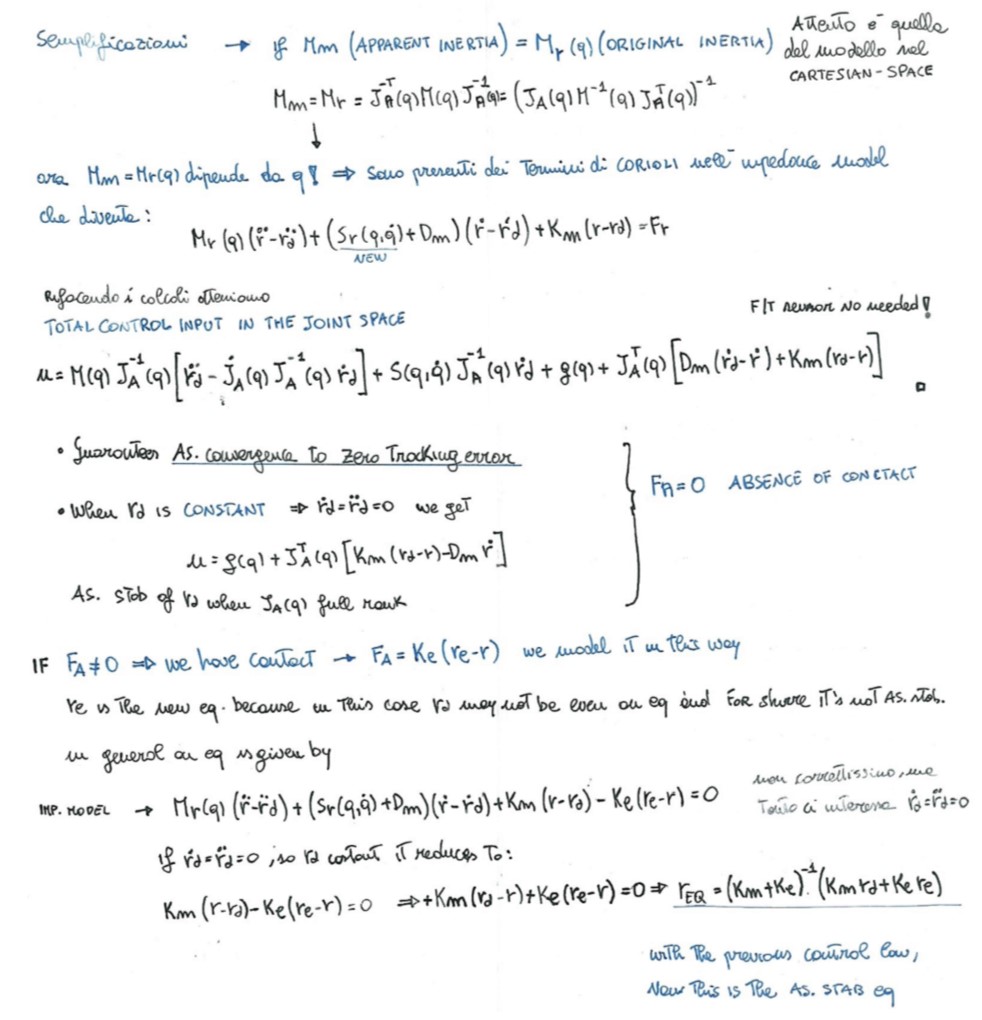 Semplificazioni → if Mm (APPARENT INERTIA) = Mr(q) (ORIGINAL INERTIA) Attento è quella
del modello nel
CARTESIAN-SPACE
Mm = Mr = J_A^{-T}(q) M(q) J_A^{-1}(q) = (J_A(q) M^{-1}(q) J_A^T(q))^{-1}
↓
ora Mm = Mr(q) dipende da q! ⇒ sono presenti dei termini di CORIOLI nell' impedance model
che diventa:
Mr(q)(r̈ - r̈d) + (Sr(q,q̇) + Dm)(ṙ - ṙd) + Km(r - rd) = Fr
NEW
Rifacendo i calcoli otteniamo
TOTAL CONTROL INPUT IN THE JOINT SPACE
F/T sensor no needed!
u = M(q) J_A^{-1}(q) [r̈d - J̇_A(q) J_A^{-1}(q) ṙd] + S(q,q̇) J_A^{-1}(q) ṙd + g(q) + J_A^T(q) [Dm(ṙd - ṙ) + Km(rd - r)]
• Guarantees As. convergence to zero tracking error
• When rd is CONSTANT ⇒ ṙd = r̈d = 0 we get
u = g(q) + J_A^T(q) [Km(rd - r) - Dm ṙ]
As. stab of rd when J_A(q) full rank
F_A = 0 ABSENCE OF CONCTACT
IF F_A ≠ 0 ⇒ we have contact → F_A = Ke(re - r) we model it in this way
re is the new eq. because in this case rd may not be even an eq and for shure it's not As. stab.
in general an eq is given by
IMP. MODEL → Mr(q)(r̈ - r̈d) + (Sr(q,q̇) + Dm)(ṙ - ṙd) + Km(r - rd) - Ke(re - r) = 0
non correttissimo, ma
tanto ci interessa ṙd = r̈d = 0
if ṙd = r̈d = 0, so rd costant it reduces to:
Km(r - rd) - Ke(re - r) = 0 ⇒ +Km(rd - r) + Ke(re - r) = 0 ⇒ r_EQ = (Km + Ke)^{-1}(Km rd + Ke re)
with the previous control law,
Now this is the AS. STAB eq